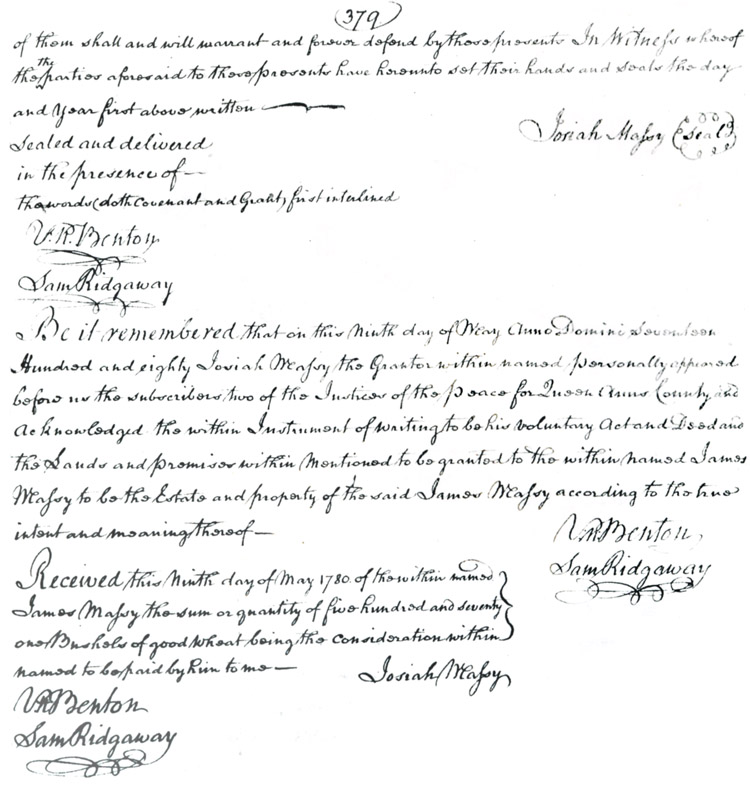 379
of them shall and will warrant and forever defend by these presents In Witness whereof
the parties aforesaid to these presents have hereunto set their hands and seals the day
and Year first above written —
Josiah Massy (Seal)
Sealed and delivered
in the presence of —
the words (doth Covenant and Grant) first interlined
V. R. Benton
Sam Ridgaway
Be it remembered that on this Ninth day of May Anno Domini Seventeen
Hundred and eighty Josiah Massy the Grantor within named personally appeared
before us the subscribers two of the Justices of the peace for Queen Anns County and
Acknowledged the within Instrument of writing to be his voluntary Act and Deed and
the Lands and premises within Mentioned to be granted to the within named James
Massy to be the Estate and property of the said James Massy according to the true
intent and meaning thereof —
VRBenton,
Sam Ridgaway
Received this Ninth day of May 1780 of the within named
James Massy the sum or quantity of five hundred and seventy
one Bushels of good wheat being the consideration within
named to be paid by him to me —
Josiah Massy
VRBenton
Sam Ridgaway